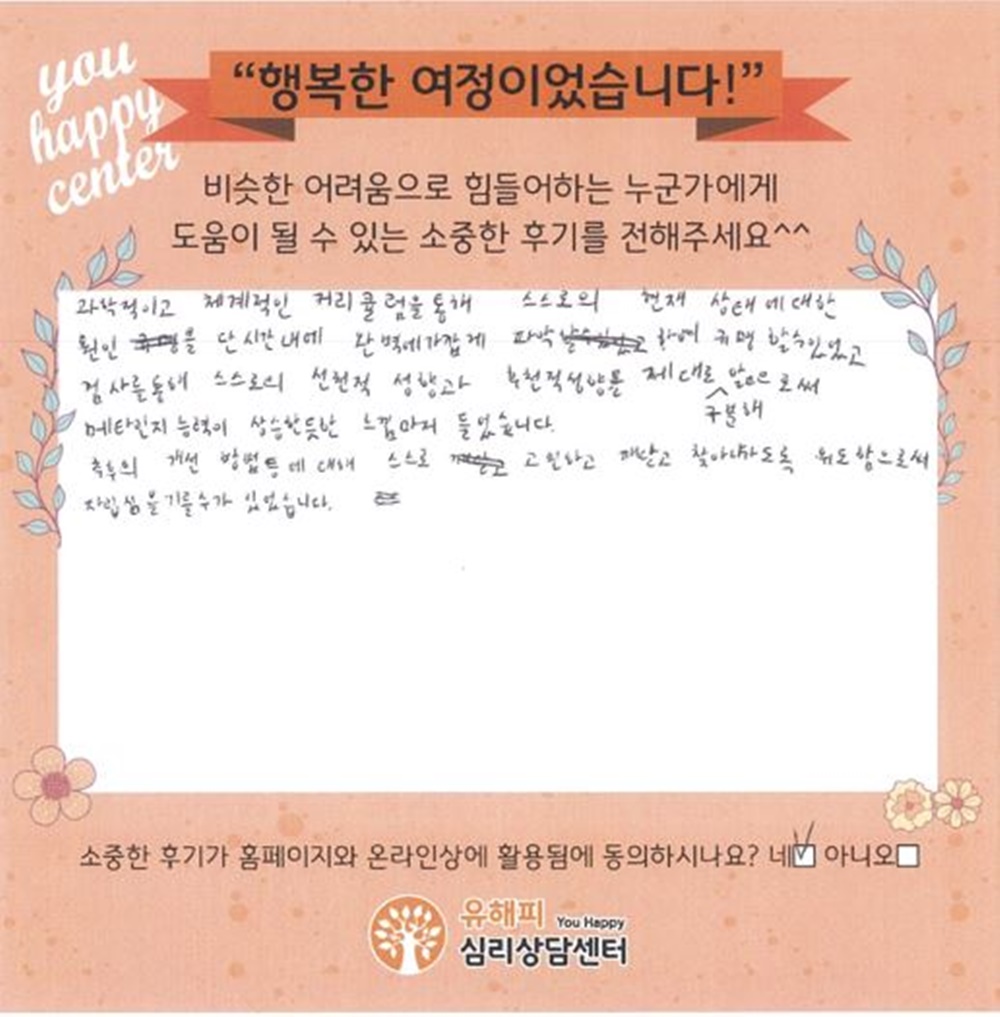 you
happy
center
“행복한 여정이었습니다!”
비슷한 어려움으로 힘들어하는 누군가에게
도움이 될 수 있는 소중한 후기를 전해주세요^^
과학적이고 체계적인 커리큘럼을통해 스스로의 현재 상태에대한
원인 을 단시간내에 완벽에가깝게 파악 하여 규명 할수있었고
검사를통해 스스로의 선천적 성향과 후천적성향을 제대로 구분해 앎으로써
메타인지 능력이 상승한듯한 느낌마저 들었습니다.
추후의 개선 방법등에대해 스스로 고민하고 깨닫고 찾아나가도록 유도함으로써
자립심을기를수가 있었습니다.
소중한 후기가 홈페이지와 온라인상에 활용됨에 동의하시나요? 네 아니오
유해피 You Happy
심리상담센터